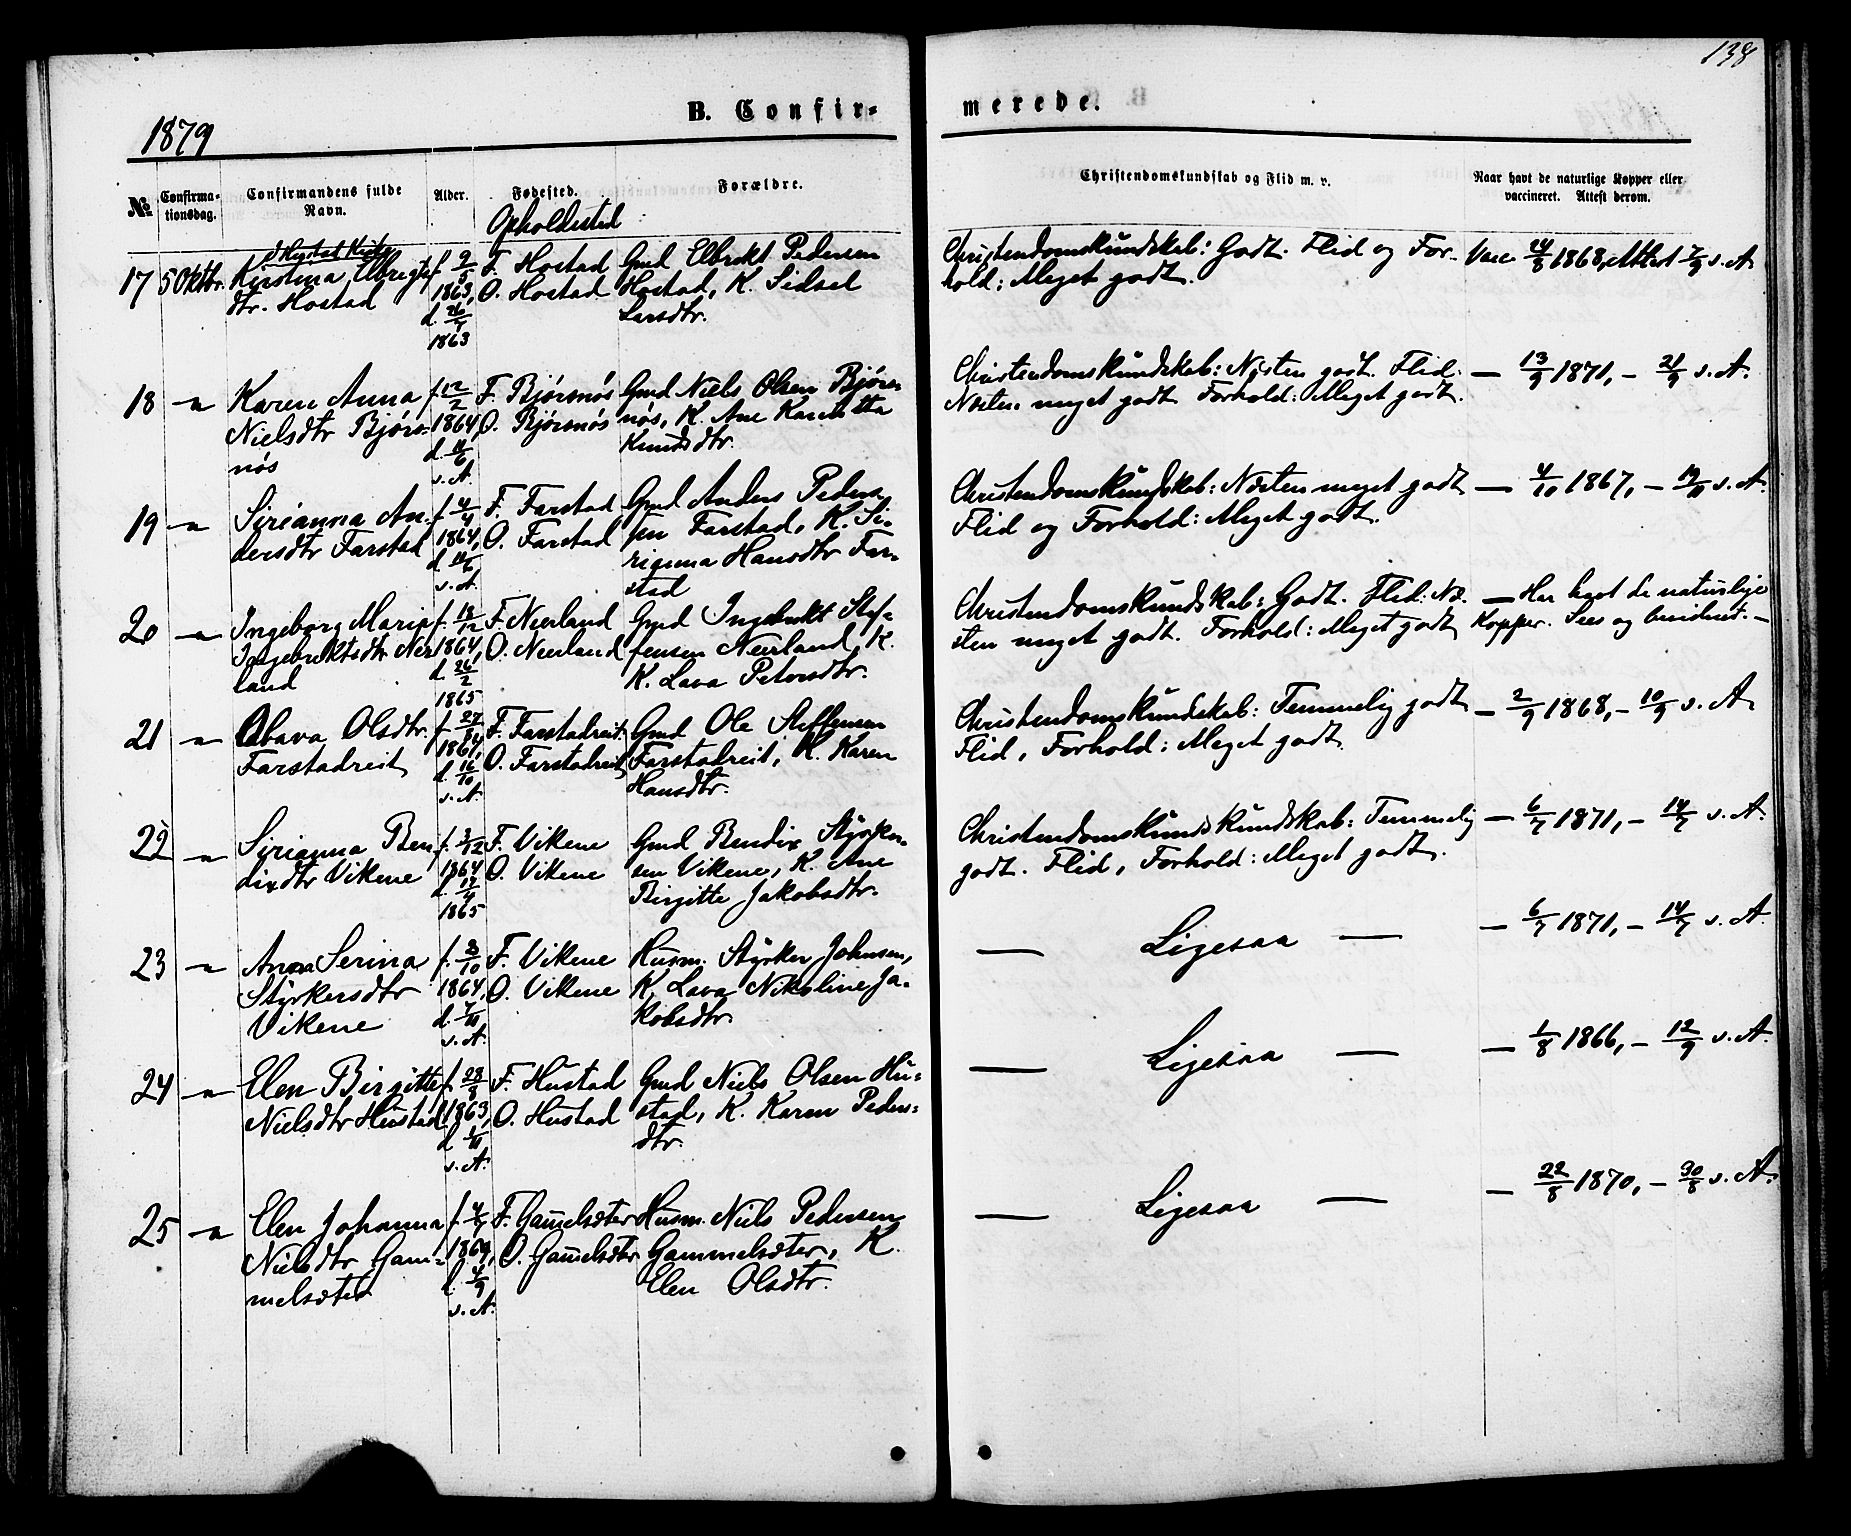 138
1879
B. Confir-
merede.
No
Confirma-
tionsdag.
Confirmandens fulde
Navn.
Alder.
Fødested.
Opholdssted
Forældre.
Christendomskundskab og Flid m. v.
Naar havt de naturlige Kopper eller
vaccineret. Attest derom.
17
5 Oktbr.
i Hustad Kirke
Kirstina Elbregts-
dtr. Hostad
f. 9/5
1863,
d. 26/7
1863
F. Hostad
O. Hostad
Gmd Elbrekt Pedersen
Hostad, K. Sidsel
Larsdtr.
Christendomskundskab: Godt. Flid og For-
hold: Meget godt.
Vacc 24/8 1868, Attest 7/9 s. A.
18
Karen Anna
Nielsdtr Bjørs-
nøs
f. 12/2
1864,
d. 11/6
s. A.
F. Bjørsnøs
O. Bjørsnøs
Gmd Niels Olsen Bjørs-
nøs, K. Ane Karlotta
Knudsdtr.
Christendomskundskab: Næsten godt. Flid:
Næsten meget godt Forhold: Meget godt.
— 13/9 1871, — 21/9 s. A.
19
Sirianna An-
dersdtr Farstad
f. 4/4
1864,
d. 11/6
s. A.
F. Farstad
O. Farstad
Gmd Anders Peder-
sen Farstad, K. Si-
rianna Hansdtr Far-
stad
Christendomskundskab: Næsten meget godt
Flid og Forhold: Meget godt.
— 4/10 1867, — 19/11 s. A.
20
Ingeborg Maria
Ingebrektsdtr Ner-
land
f. 13/12
1864,
d. 26/2
1865
F. Nerland
O. Nerland
Gmd Ingebrekt Stef-
fensen Nerland, K.
K. Lava Petersdtr.
Christendomskundskab: Godt. Flid: Næ-
sten meget godt. Forhold: Meget godt
— Har havt de naturlige
Kopper. Sees og bevidnet. —
21
Olava Olsdtr.
Farstadreit
f. 27/8
1864,
d. 16/10
s. A.
F. Farstadreit
O. Farstadreit
Gmd Ole Steffensen
Farstadreit, K. Karen
Hansdtr.
Christendomskundskab: Temmelig godt
Flid, Forhold: Meget godt.
— 2/9 1868, — 10/9 s. A.
22
Sirianna Ben-
dixdtr Vikene
1864
1865
F. Vikene
O. Vikene
Gmd Bendix Styrker-
sen Vikene, K. Ane
Birgitte Jakobsdtr.
Christendomskundskundskab: Temmelig
godt. Flid, Forhold: Meget godt.
— 6/7 1871, — 14/7 s. A.
23
Anna Serina
Styrkersdtr
Vikene
f. 3/10
1864,
d. 7/11
s. A.
F. Vikene
O. Vikene
Husm. Styrker Johnsen,
K. Lava Nikoline Ja-
kobsdtr.
— Ligesaa —
— 6/7 1871, — 14/7 s. A.
24
Elen Birgitte
Nielsdtr Hustad
f. 28/9
1863,
d. 1/11
s. A.
F. Hustad
O. Hustad
Gmd Niels Olsen Hu-
stad, K. Karen Peders-
dtr.
— Ligesaa —
— 1/8 1866, — 12/9 s. A.
25
Elen Johanna
Nielsdtr Gam-
melsæter
f. 4/7
1864,
d. 4/9
s. A.
F. Gamelsæter
O. Gamelsæter
Husm. Niels Pedersen
Gammelsæter, K.
Elen Olsdtr.
— Ligesaa —
— 22/8 1870, — 30/8 s. A.